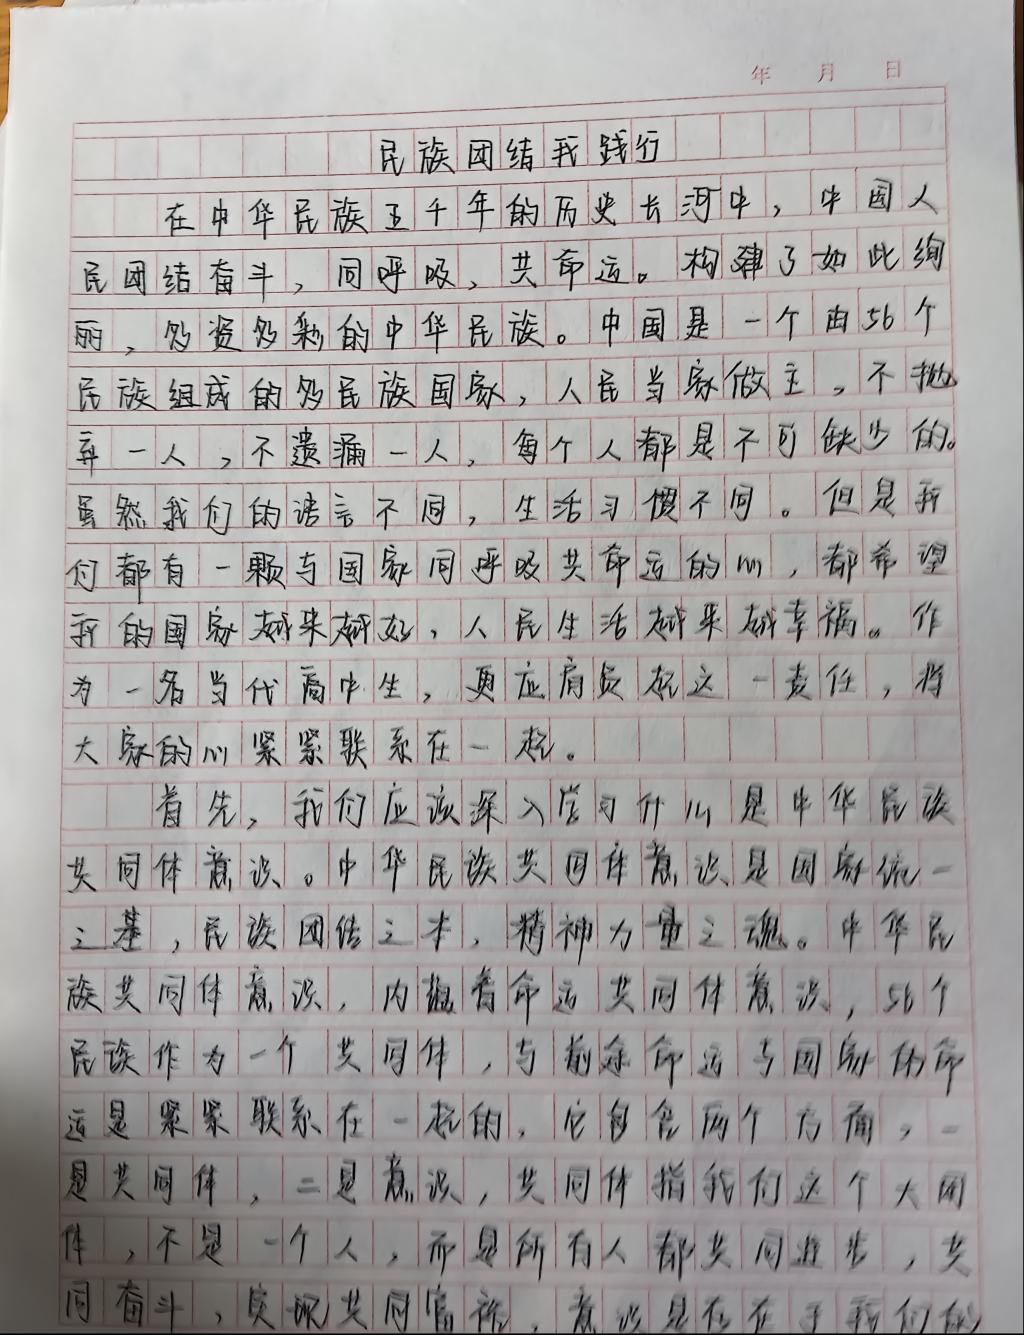 年 月 日
民族团结我践行
在中华民族五千年的历史长河中，中国人
民团结奋斗，同呼吸，共命运。构建了如此绚
丽，多资多彩的中华民族。中国是一个由56个
民族组成的多民族国家，人民当家做主，不抛
弃一人，不遗漏一人，每个人都是不可缺少的。
虽然我们的语言不同，生活习惯不同。但是我
们都有一颗与国家同呼吸共命运的心，都希望
我的国家越来越好，人民生活越来越幸福。作
为一名当代高中生，更应肩负起这一责任，将
大家的心紧紧联系在一起。
首先，我们应该深入学习什么是中华民族
共同体意识。中华民族共同体意识是国家统一
之基，民族团结之本，精神力量之魂。中华民
族共同体意识，内蕴着命运共同体意识，56个
民族作为一个共同体，与前途命运与国家的命
运是紧紧联系在一起的，它包含两个方面，一
是共同体，二是意识，共同体指我们这个大团
体，不是一个人，而是所有人都共同进步，共
同奋斗，实现共同富裕，意识是存在于我们的